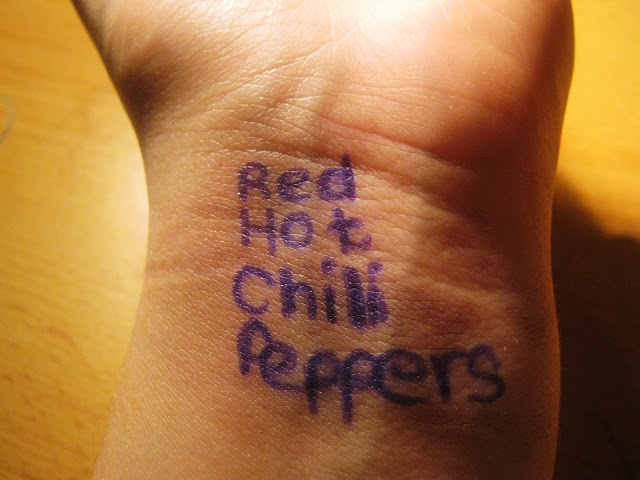 Red
Hot
Chili
Peppers